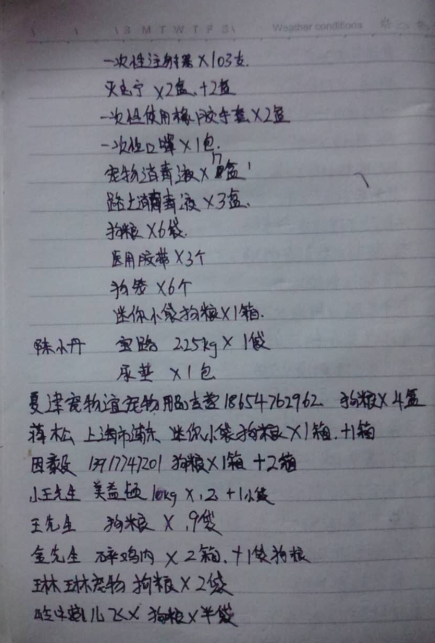 Weather conditions
一次性注射器×103支
灭虫宁×2盒,+2盒
一次性使用橡胶手套×2盒
一次性口罩×1包.
宠物消毒液×17盒
路上消毒液×3盒.
狗粮×6袋.
医用胶带×3个
狗笼×6个
迷你小袋狗粮×1箱.
陈小丹 宝路 2.25kg×1袋
尿垫×1包
夏津宠物谊宠物用品 18654762962 狗粮×4盒
蒋松 上海市 迷你小袋狗粮×1箱,+1箱
因毅 狗粮×1箱+2箱
小王先生 美益 10kg×
王先生 狗粮×.9袋
金先生 碎鸡肉×2箱,+1袋狗粮
琳琳宠物 狗粮×2袋
狗粮×半袋